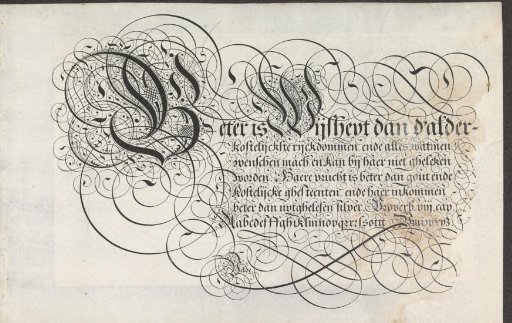 Beter is Wijsheyt dan d'alder-
kostelijckste rijckdommen: ende alles watmen
wenschen mach en kan bij haer niet gheleken
worden. Haere vrucht is beter dan gout ende
kostelijcke ghesteenten: ende haer inkommen
beter dan uytghelesen silver. Proverb. viij. cap.
Aabcdefffghiklmnopqrrsſottt